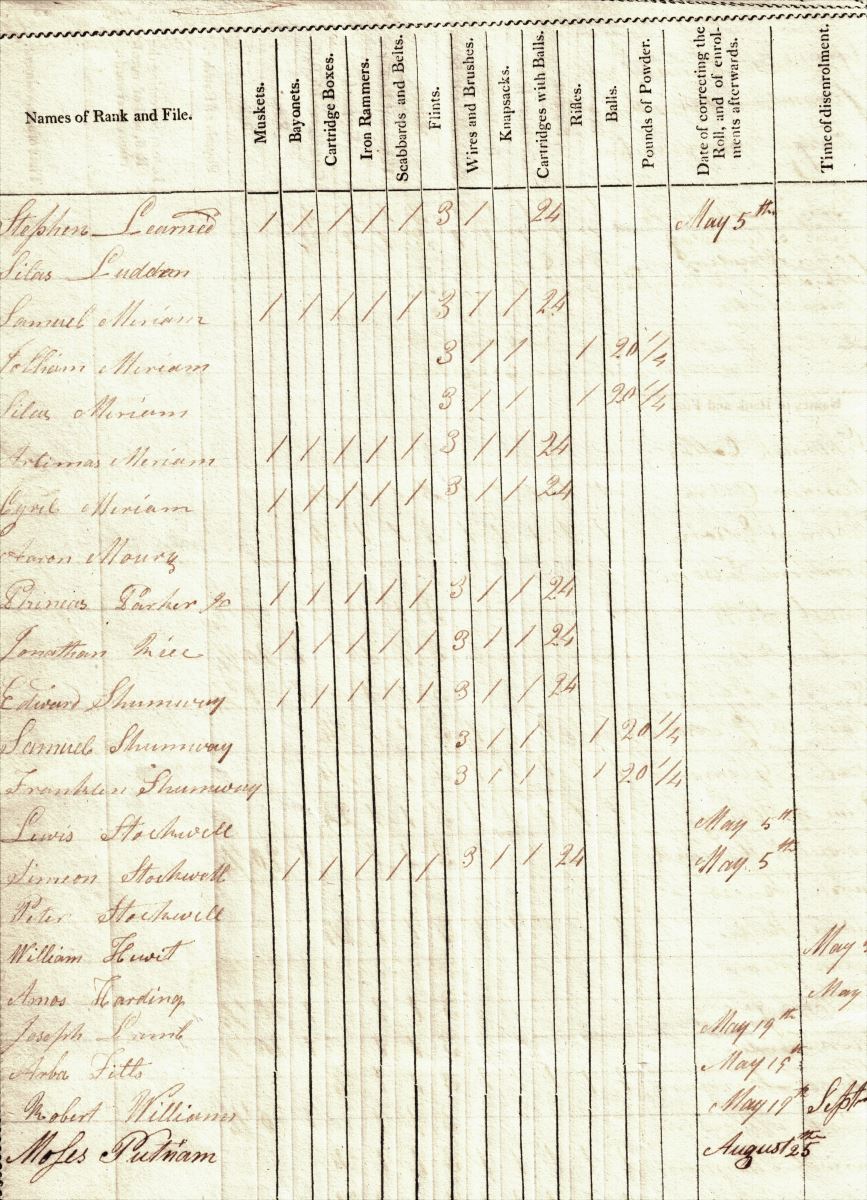 Names of Rank and File. Muskets. Bayonets. Cartridge Boxes. Iron Rammers. Scabbards and Belts. Flints. Wires and Brushes. Knapsacks. Cartridges with Balls. Rifles. Balls. Pounds of Powder. Date of correcting the Roll, and of enrolments afterwards. Time of disenrolment.
Stephen Learned 1 1 1 1 1 3 1 24 May 5th
Silas Luddan
Samuel Miriam 1 1 1 1 1 3 1 1 24
Jotham Miriam 3 1 1 1 20 1/4
Silas Miriam 3 1 1 1 20 1/4
Artimas Miriam 1 1 1 1 1 3 1 1 24
Cyril Miriam 1 1 1 1 1 3 1 1 24
Aaron Moury
Phineas Parker Jr 1 1 1 1 1 3 1 1 24
Jonathan Rice 1 1 1 1 1 3 1 1 24
Edward Shumway 1 1 1 1 1 3 1 1 24
Samuel Shumway 3 1 1 1 20 1/4
Franklin Shumway 3 1 1 1 20 1/4
Lewis Stockwell May 5th
Simeon Stockwell 1 1 1 1 1 3 1 1 24 May 5th
Peter Stockwell
William Hewit May
Amos Harding May
Joseph Lamb May 19th
Arba Fitts May 15th
Robert Williams May 19th Sept
Moses Putnam August 25th